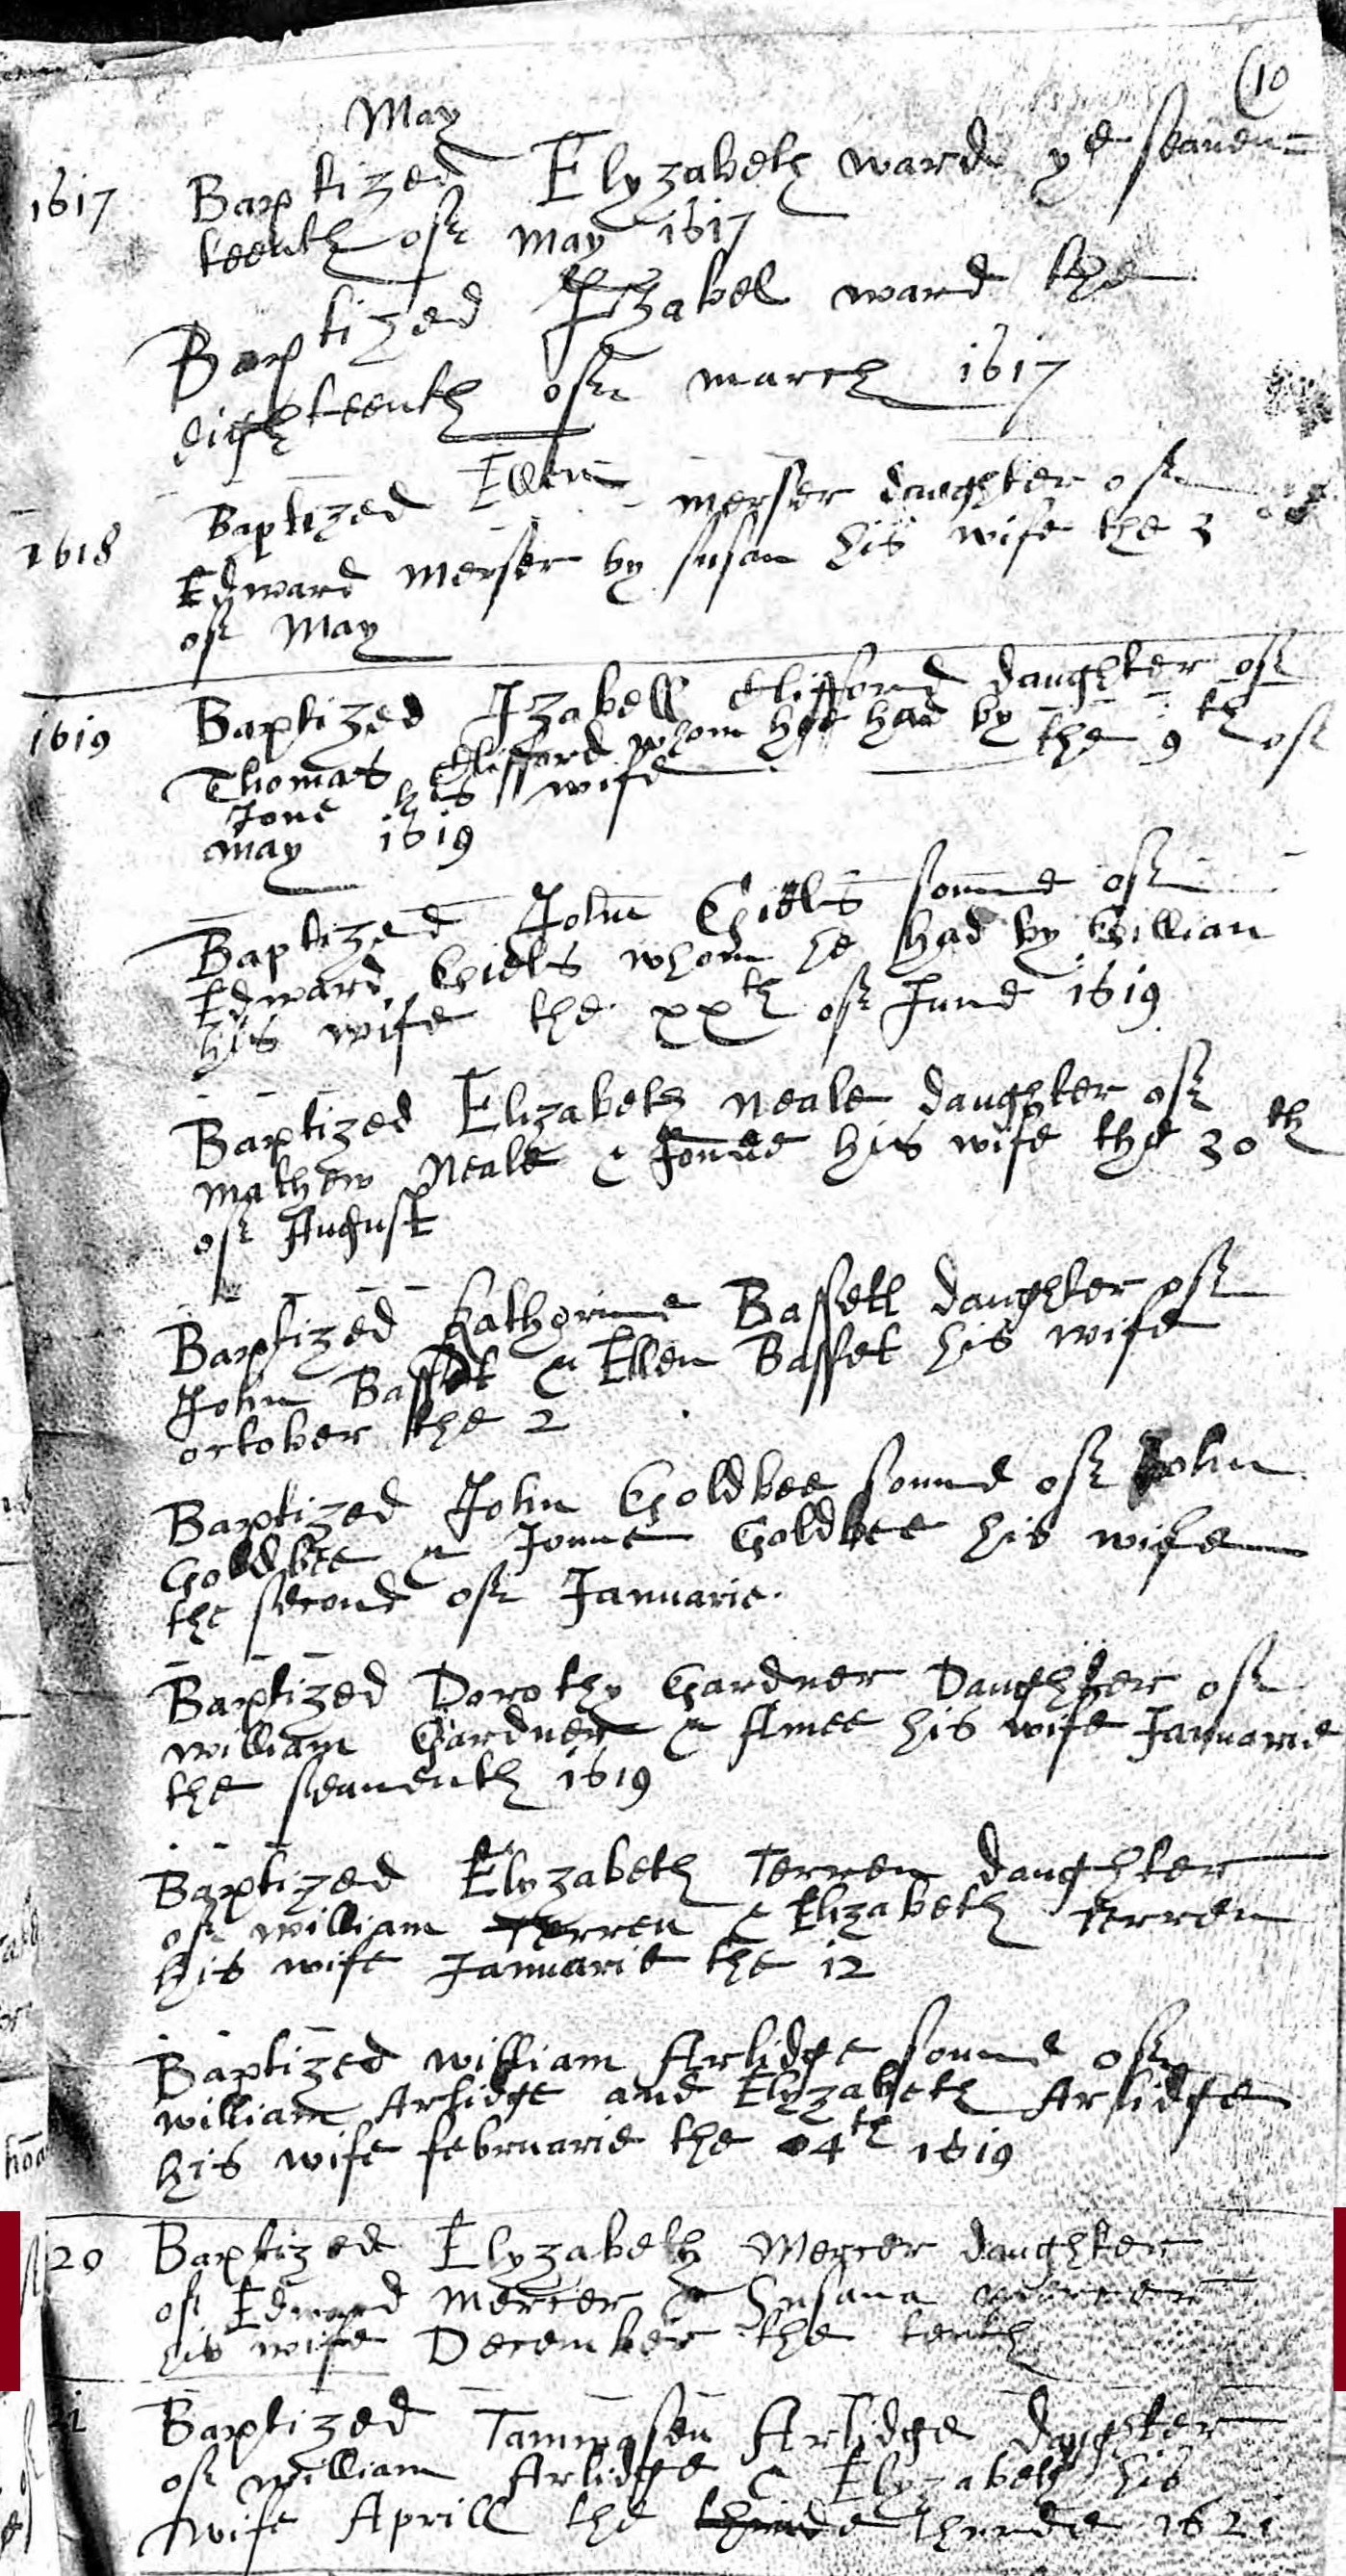 (10
May
1617 Baptized Elyzabeth ward ye seauen=
teenth of May 1617
Baptized Izabel ward the
eighteenth of march 1617
1618 Baptized Ellen merser daughter of
Edward merser by susan his wife the 3
of May
1619 Baptized Izabell Clifford daughter of
Thomas Clifford whom hee had by
Jone his wife the 9th of
may 1619
Baptized John Giels sonne of
Edward Giels whom he had by Gillian
his wife the xxth of June 1619
Baptized Elizabeth Neale daughter of
mathew Neale & Jonne his wife the 30th
of August
Baptized Katherine Bassett daughter of
John Basset & Ellen Basset his wife
october the 2
Baptized John Goldbee sonne of John
Goldbee & Jonne Goldbee his wife
the second of Januarie.
Baptized Dorothy Gardner Daughter of
William Gardner & Amee his wife Januarie
the seauenth 1619
Baptized Elyzabeth Terren daughter
of william Terren & Elizabeth terren
his wife Januarie the 12
Baptized william Arlidge sonne of
william Arlidge and Elyzabeth Arlidge
his wife februarie the 04th 1619
20 Baptized Elyzabeth Mercer daughter
of Edward Mercer & Susana mercer
his wife December the tenth
1 Baptized Tammasen Arlidge daughter
of william Arlidge & Elyzabeth his
wife Aprill the thurde 1621